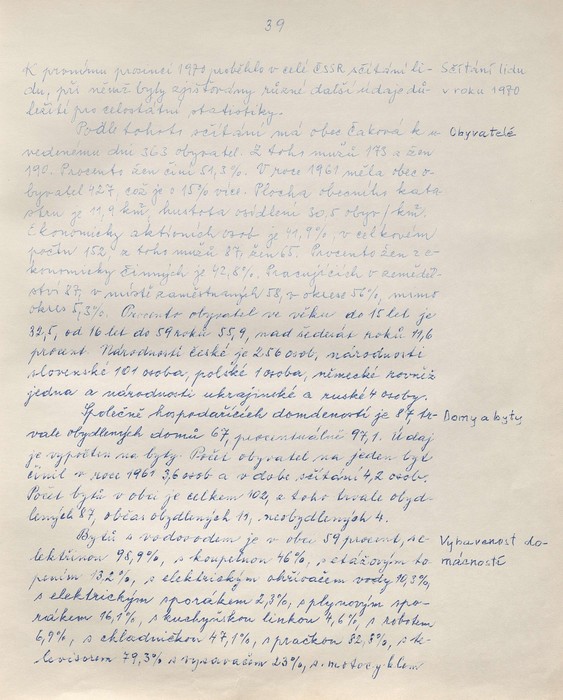 39
K prvnímu prosinci 1970 proběhlo v celé ČSSR sčítání li-
du, při němž byly zjišťovány různé další údaje dů-
ležité pro celostátní statistiky.
Sčítání lidu
v roku 1970
Podle tohoto sčítání má obec Čaková k u-
vedenému dni 363 obyvatel. Z toho mužů 173 a žen
190. Procento žen činí 51,3%. V roce 1961 měla obec o-
byvatel 427, což je o 15% více. Plocha obecního kata
stru je 11,9 km², hustota osídlení 30,5 obyv/km².
Ekonomicky aktivních osob je 41,9%, v celkovém
počtu 152, z toho mužů 87, žen 65. Procento žen e-
konomicky činných je 42,8%. Pracujících v zeměděl-
ství 87, v místě zaměstnaných 58, v okrese 56%, mimo
okres 5,3%. Procento obyvatel ve věku do 15 let je
32,5, od 16 let do 59 roků 55,9, nad šedesát roků 11,6
procent. Národnosti české je 256 osob, národnosti
slovenské 101 osoba, polské 1 osoba, německé rovněž
jedna a národnosti ukrajinské a ruské 4 osoby.
Obyvatelé
Společně hospodařících domácností je 87, tr-
vale obydlených domů 67, procentuálně 97,1. Údaj
je vypočten na byty. Počet obyvatel na jeden byt
činil v roce 1961 3,6 osob a v době sčítání 4,2 osob.
Počet bytů v obci je celkem 102, z toho trvale obyd-
lených 87, občas obydlených 11, neobydlených 4.
Domy a byty
Bytů s vodovodem je v obci 59 procent, s e-
lektřinou 98,9%, s koupelnou 46%, s etážovým to-
pením 13,2%, s elektrickým ohřívačem vody 10,3%,
s elektrickým sporákem 2,3%, s plynovým spo-
rákem 16,1%, s kuchyňskou linkou 4,6%, s robotem
6,9%, s chladničkou 47,1%, s pračkou 82,8%, s te-
levisorem 79,3% s vysavačem 23%, s motocyklem
Vybavenost do-
mácností